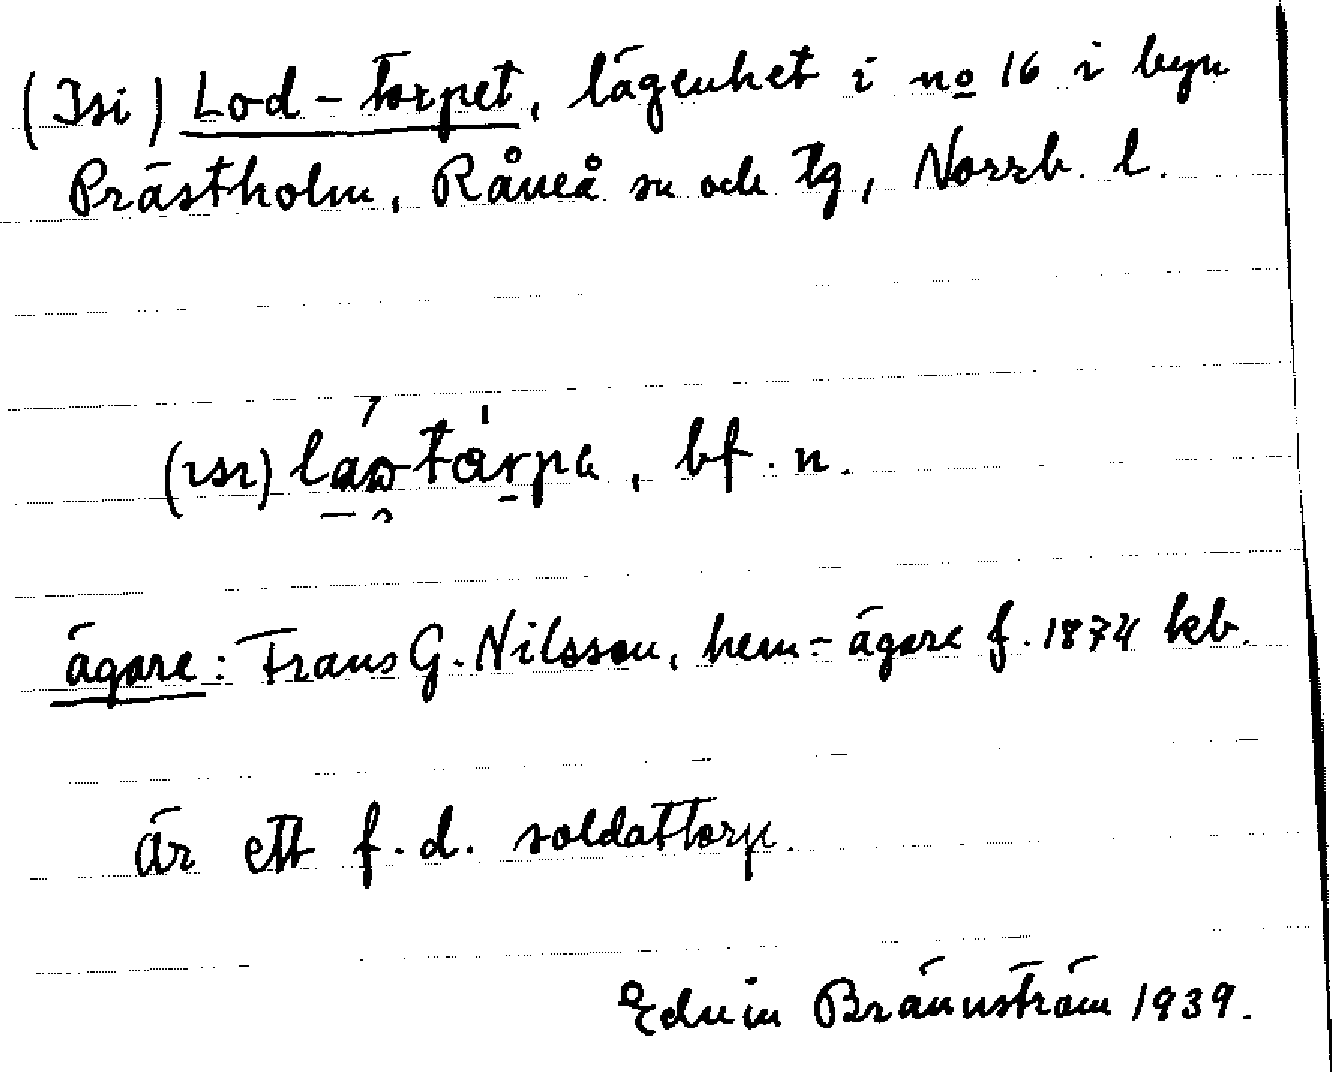 (Isi) Lod-torpet, lägenhet i no 16 i byn
Prästholm, Råneå sn och tg, Norrb. l.
bf. n.
ägare: Frans G. Nilsson, hem-ägare f. 1874 kb.
är ett f.d. soldattorp.
Edvin Brännström 1939.